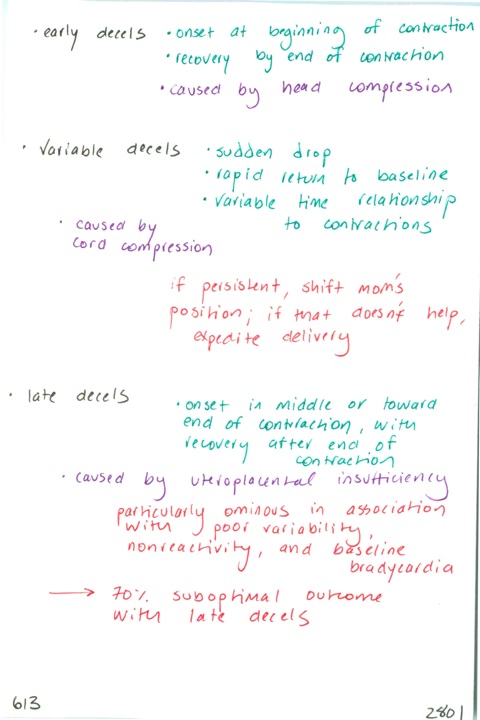 · early decels · onset at beginning of contraction
· recovery by end of contraction
· caused by head compression
· variable decels · sudden drop
· rapid return to baseline
· variable time relationship
to contractions
· caused by
cord compression
if persistent, shift mom's
position; if that doesn't help,
expedite delivery
· late decels
· onset in middle or toward
end of contraction, with
recovery after end of
contraction
· caused by uteroplacental insufficiency
particularly ominous in association
with poor variability,
nonreactivity, and baseline
bradycardia
→ 70% suboptimal outcome
with late decels
613
2801